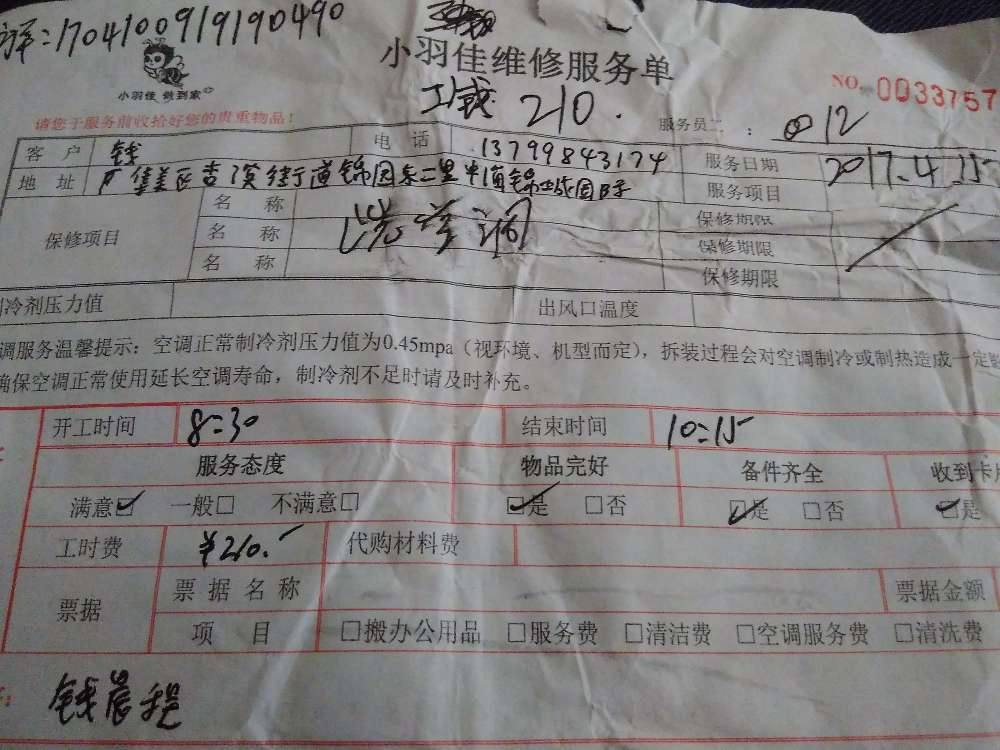 :1704100919190490
小羽佳维修服务单
小羽佳 做到家
工钱 210.
NO. 0033757
请您于服务前收拾好您的贵重物品!
服务员二 : 12
客户 钱 电话 13799843174 服务日期 2017.4.15
地址 服务项目
保修项目 名称 保修期限
名称 洗空调 保修期限
名称 保修期限
制冷剂压力值 出风口温度
调服务温馨提示:空调正常制冷剂压力值为0.45mpa(视环境、机型而定),拆装过程会对空调制冷或制热造成一定
确保空调正常使用延长空调寿命,制冷剂不足时请及时补充。
开工时间 8:30 结束时间 10:15
服务态度 物品完好 备件齐全 收到卡
满意☑ 一般□ 不满意□ ☑是 □否 ☑是 □否 ☑是
工时费 ¥210.- 代购材料费
票据 票据名称 票据金额
项目 □搬办公用品 □服务费 □清洁费 □空调服务费 □清洗费
钱晨程